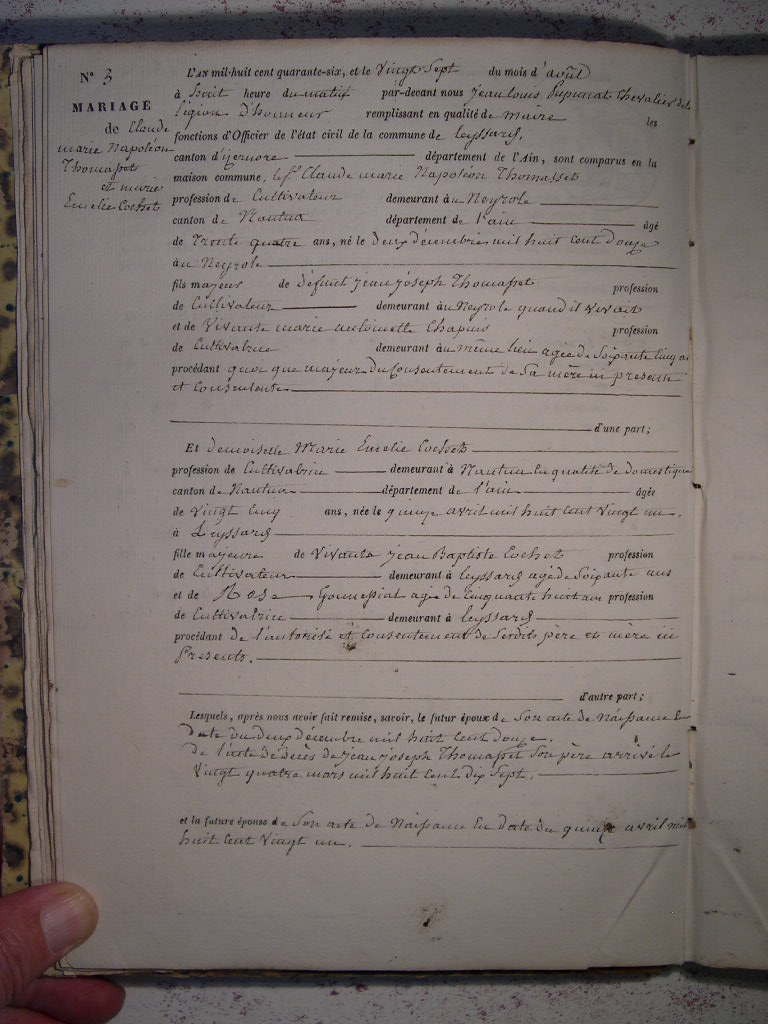 N° 3
MARIAGE
de Claude
marie Napoléon
Thomasset
et marie
Emelie Cochet
L'AN mil-huit cent quarante-six, et le Vingt Sept du mois d'août
à huit heure du matin par-devant nous jean louis Chevalier de la
légion D'honneur remplissant en qualité de maire les
fonctions d'Officier de l'état civil de la commune de Leyssard,
canton d'izernore département de l'Ain, sont comparus en la
maison commune, le Sr Claude marie Napoléon Thomasset
profession de Cultivateur demeurant à u Neyrole
canton de Nantua département de l'ain âgé
de Trente quatre ans, né le deux décembre mil huit Cent Douze
à u Neyrole
fils majeur de Défunt jean joseph Thomasset profession
de Cultivateur demeurant à u Neyrole quand il vivait
et de Vivante marie antoinette Chapuis profession
de Cultivatrice demeurant à u même lieu agée de Soixante Cinq a
procédant quoi que majeur du Consentement de Sa mère ici presente
et Consentente
d'une part;
Et demoiselle Marie Emelie Cochet
profession de Cultivatrice demeurant à Nantua En qualité de domestique
canton de Nantua département de l'ain âgée
de Vingt Cinq ans, née le quinze avril mil huit Cent Vingt un.
à Leyssard
fille majeure de Vivants jean Baptiste Cochet profession
de Cultivateur demeurant à Leyssard agé de Soixante ans
et de Rose agée de Cinquante huit ans profession
de Cultivatrice demeurant à Leyssard
procédant de l'autorité et Consentement de Sesdits père et mère ici
Presents.
d'autre part;
Lesquels, après nous avoir fait remise, savoir, le futur époux de Son acte de Naissance En
Date du Deux décembre mil huit Cent Douze.
De l'acte de décès de jean joseph Thomasset Son père arrivé le
Vingt quatre mars mil huit Cent dix Sept.
et la future épouse de Son acte de Naissance En date du quinze avril mil
huit Cent Vingt un.